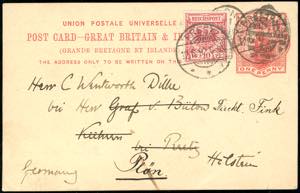 UNION POSTALE UNIVERSELLE
POST CARD-GREAT BRITAIN & I
(GRANDE BRETAGNE ET IRLANDE)
THE ADDRESS ONLY TO BE WRITTEN ON THE
REICHSPOST
ONE PENNY
Herr C Wentworth Dilke
bei Herr Graf v. Bülow
bei
Plön Holstein
Germany